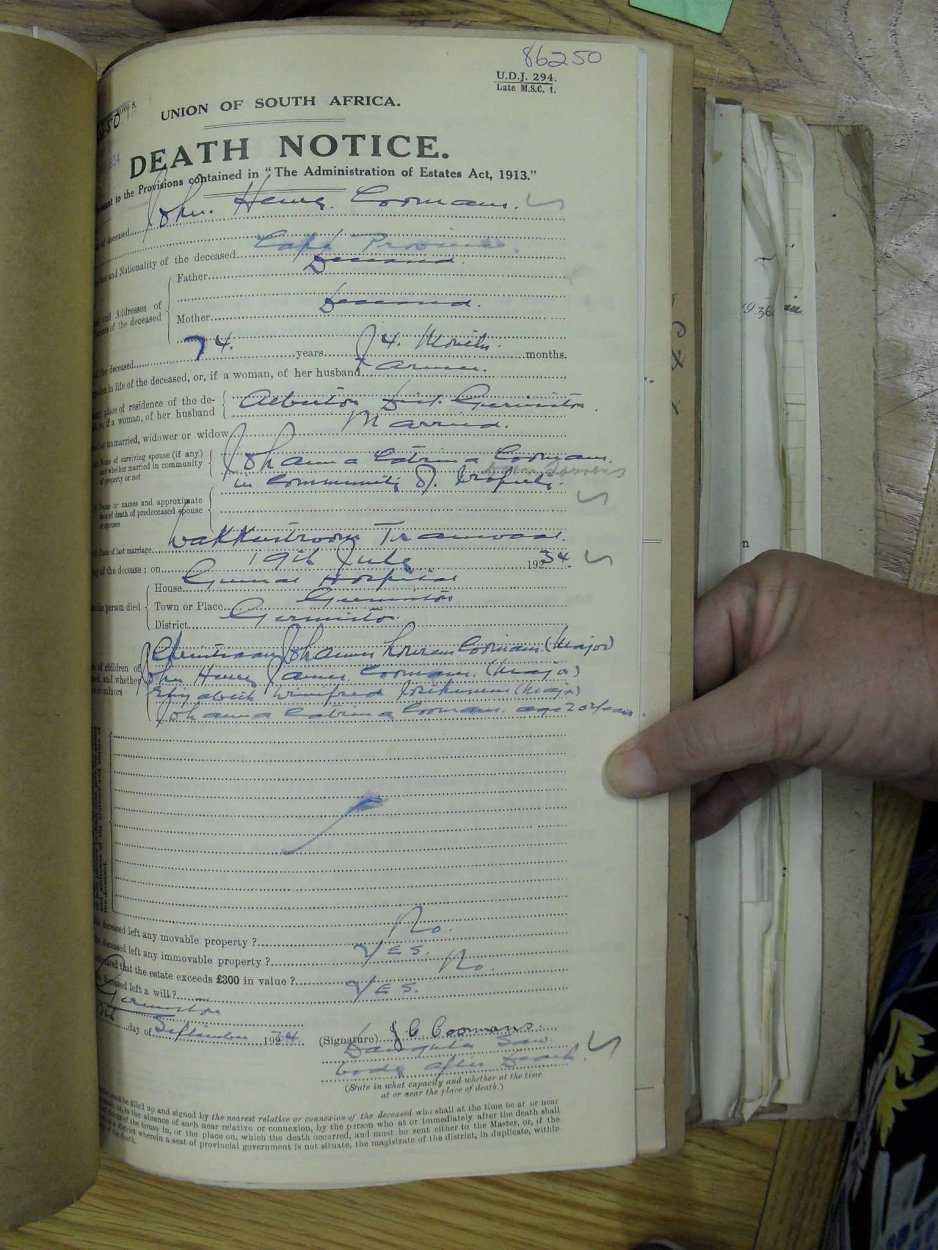 86250
U.D.J. 294.
Late M.S.C. 1.
UNION OF SOUTH AFRICA.
DEATH NOTICE.
to the Provisions contained in "The Administration of Estates Act, 1913."
John Henry Coomans.
of deceased
Cape Province.
and Nationality of the deceased
Deceased.
Father
Addresses of
of the deceased
Deceased.
Mother
of the deceased 74. years 4. Months months.
in life of the deceased, or, if a woman, of her husband Farmer.
place of residence of the de-
or, if a woman, of her husband
Alberton Dist. Germiston.
unmarried, widower or widow Married.
Name of surviving spouse (if any)
and whether married in community
of property or not
Johanna Catrina Coomans.
in Community of Property.
or names and approximate
of death of predeceased spouse
or spouses
Place of last marriage Wakkerstroom Transvaal.
of the decease: on 19th July 1934.
House General Hospital
the person died
Town or Place Germiston
District Germiston.
of children of
and whether
or minors
Johannes Coomans (Major)
John Henry James Coomans. (Major)
Elizabeth Winifred (Major)
Johanna Catrina Coomans. age 20 years.
deceased left any movable property? No.
deceased left any immovable property? YES.
that the estate exceeds £300 in value? No.
left a will? YES.
Germiston
day of September 1934.
(Signature) J C Coomans.
Daughter Saw
body after Death.
(State in what capacity and whether at the time
at or near the place of death.)
must be filled up and signed by the nearest relative or connexion of the deceased who shall at the time be at or near
in the absence of such near relative or connexion, by the person who at or immediately after the death shall
of the house in, or the place on, which the death occurred, and must be sent either to the Master, or, if the
district wherein a seat of provincial government is not situate, the magistrate of the district, in duplicate, within
death.
1936